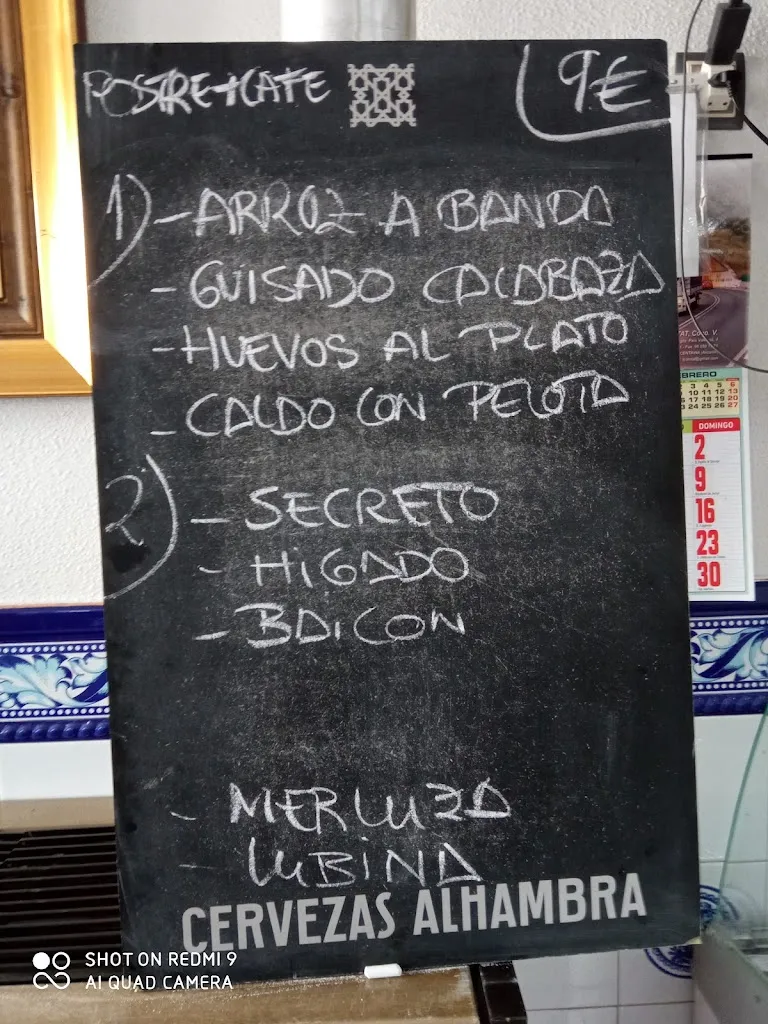 POSTRE+CAFE
9€
1) -ARROZ A BANDA
-GUISADO CALABAZA
-HUEVOS AL PLATO
-CALDO CON PELOTA
2) -SECRETO
-HIGADO
-BAICON
-MERLUZA
-LUBINA
CERVEZAS ALHAMBRA
BRERO
2 3 4 5 6
10 11 12 13
17 18 19 20
24 25 26 27
DOMINGO
2
9
16
23
30
SHOT ON REDMI 9
AI QUAD CAMERA